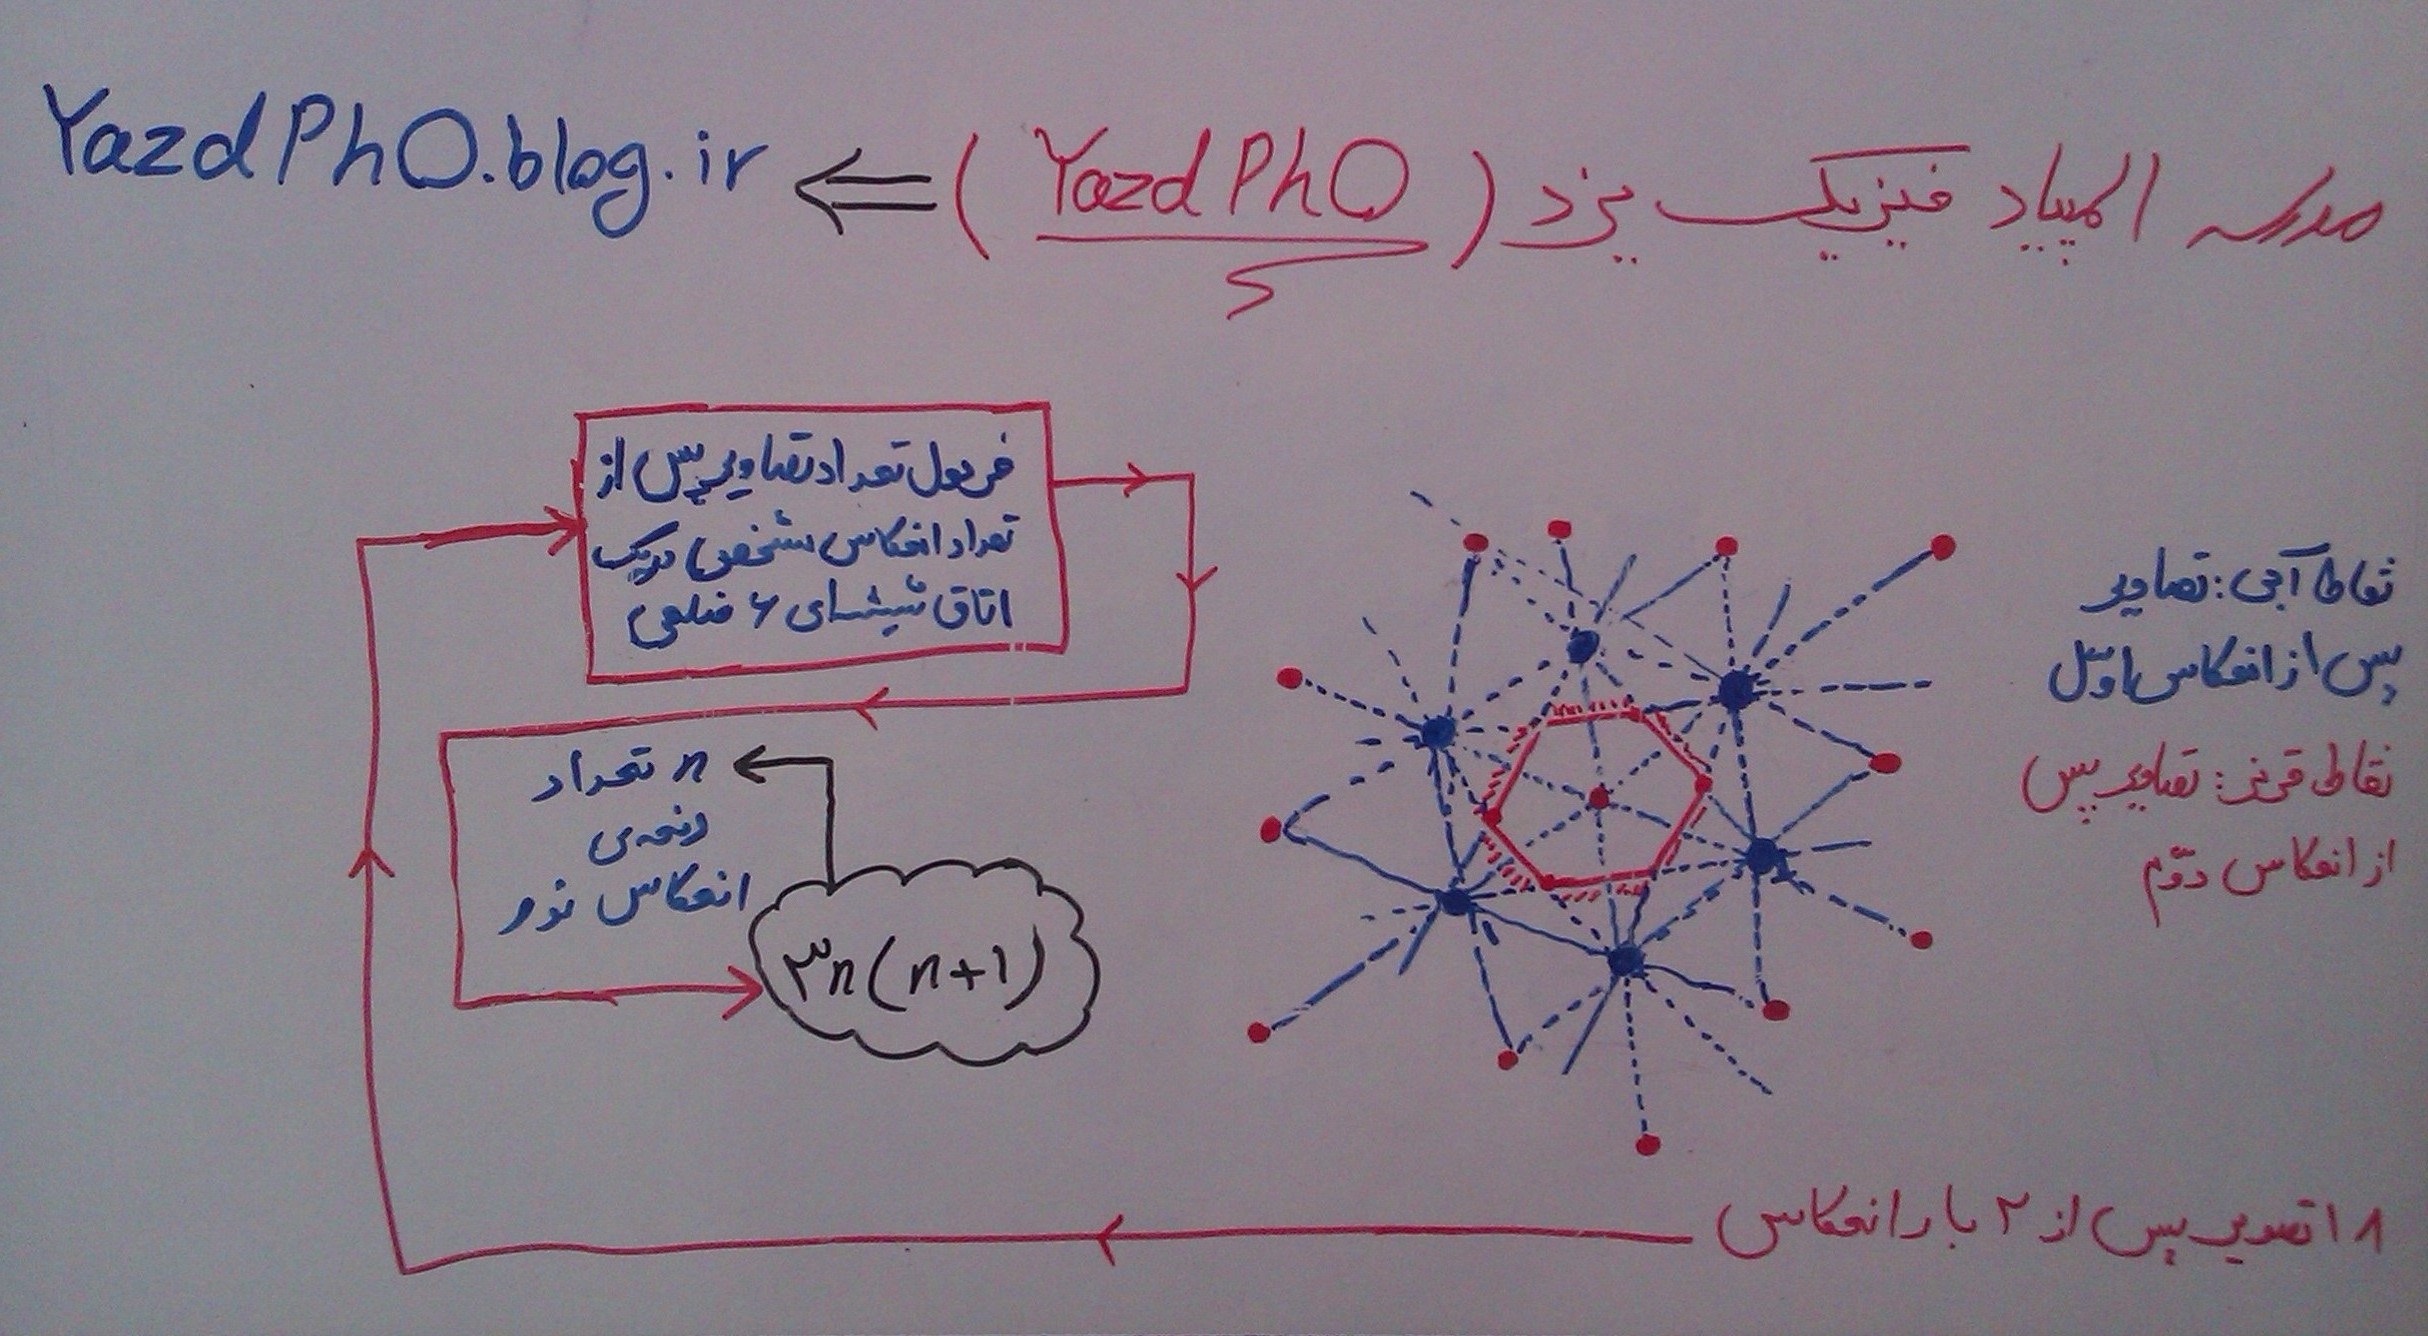 مدرسه المپیاد فیزیک یزد (YazdPhO) ⇐ YazdPhO.blog.ir
فرمول تعداد تصاویر پس از
تعداد انعکاس مشخص در یک
اتاق شیشه‌ای ۶ ضلعی
n تعداد
دفعه‌ی
انعکاس نور
۳n(n+1)
نقاط آبی: تصاویر
پس از انعکاس اوّل
نقاط قرمز: تصاویر پس
از انعکاس دوّم
۱۸ تصویر پس از ۲ بار انعکاس